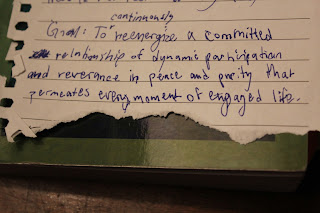 continuously
Goal: To reenergize a committed
relationship of dynamic participation
and reverance in peace and purity that
permeates every moment of engaged life.